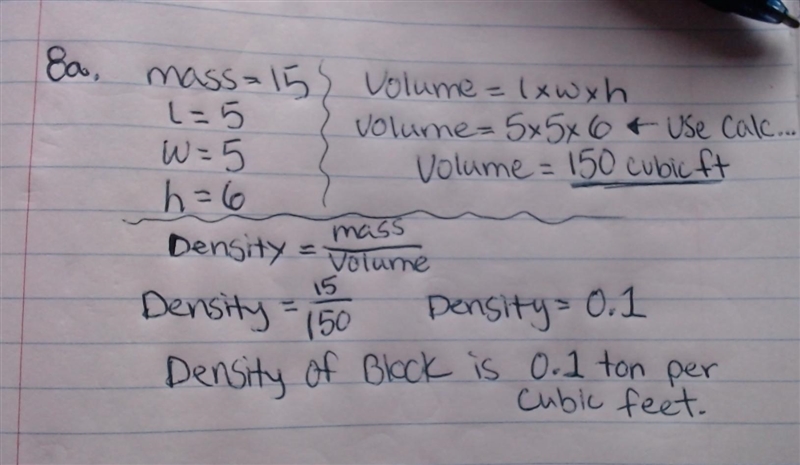 8a.
mass = 15
l = 5
w = 5
h = 6
Volume = l x w x h
Volume = 5x5x6 ← Use Calc...
Volume = 150 cubic ft
Density = mass
Volume
Density = 15
150
Density = 0.1
Density of Block is 0.1 ton per
cubic feet.